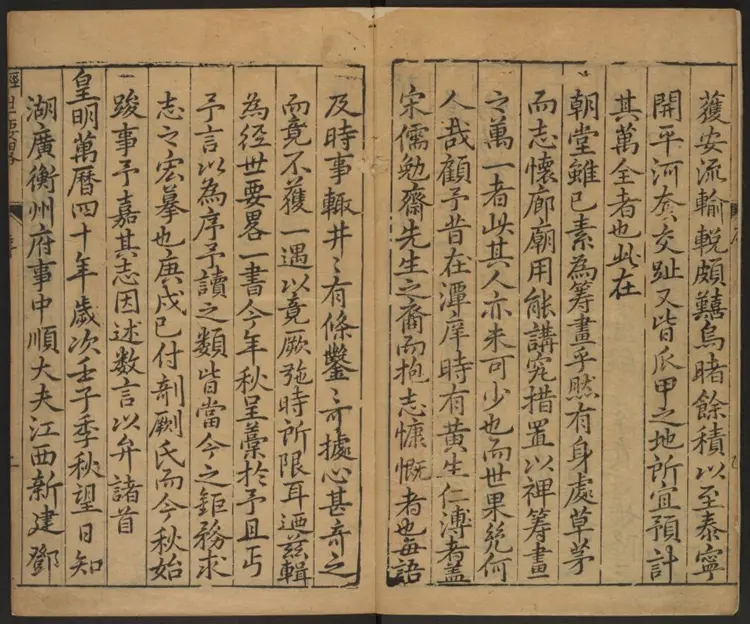 獲安流輸輓頗囏烏睹餘積以至泰寧
開平河套交趾又皆爪甲之地所宜預計
其萬全者也此在
朝堂雖已素為籌畫乎然有身處草茅
而志懷廊廟用能講究措置以裨籌畫
之萬一者此其人亦未可少也而世果幾何
人哉顧予昔在潭庠時有黃生仁溥者蓋
宋儒勉齋先生之裔而抱志慷慨者也每語
及時事輙井〻有條鑿〻可據心甚奇之
而竟不獲一遇以竟厥施時所限耳廼茲輯
為經世要畧一書今年秋呈藁於予且丐
予言以為序予讀之類皆當今之鉅務求
志之宏摹也庚戌已付剞劂氏而今秋始
踆事予嘉其志因述数言以弁諸首
皇明萬曆四十年歲次壬子季秋望日知
湖廣衡州府事中順大夫江西新建鄧
經世要畧
序